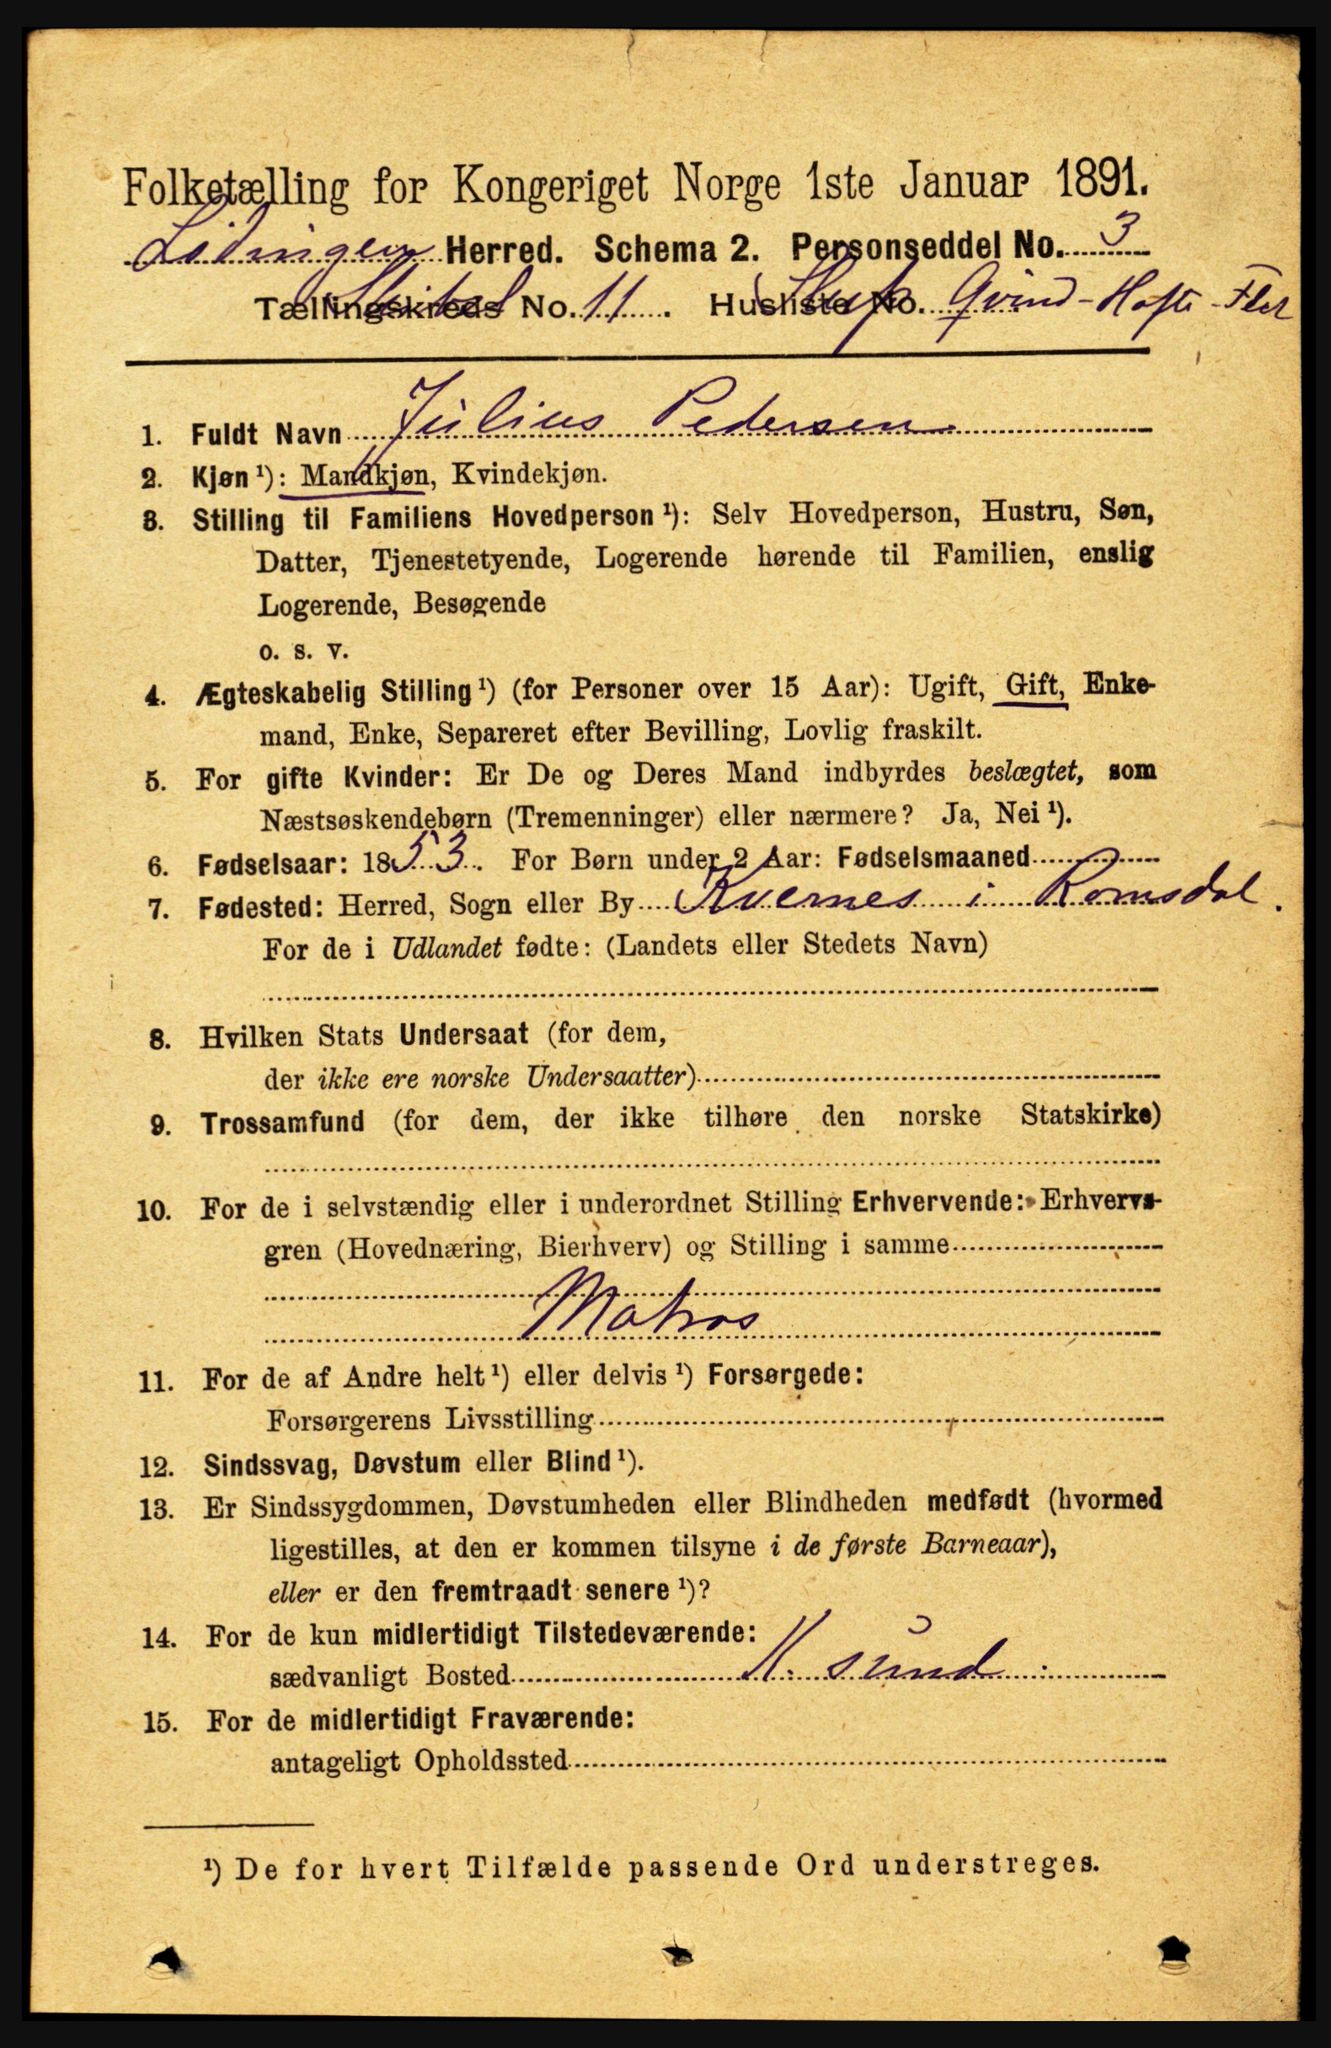 Folketælling for Kongeriget Norge 1ste Januar 1891.
Lødingen Herred. Schema 2. Personseddel No. 3
Tællingskreds No. 11. Husliste No.
1. Fuldt Navn Julius Pedersen
2. Kjøn ¹): Mandkjøn, Kvindekjøn.
3. Stilling til Familiens Hovedperson ¹): Selv Hovedperson, Hustru, Søn,
Datter, Tjenestetyende, Logerende hørende til Familien, enslig
Logerende, Besøgende
o. s. v.
4. Ægteskabelig Stilling ¹) (for Personer over 15 Aar): Ugift, Gift, Enke-
mand, Enke, Separeret efter Bevilling, Lovlig fraskilt.
5. For gifte Kvinder: Er De og Deres Mand indbyrdes beslægtet, som
Næstsøskendebørn (Tremenninger) eller nærmere? Ja, Nei ¹).
6. Fødselsaar: 1853. For Børn under 2 Aar: Fødselsmaaned
7. Fødested: Herred, Sogn eller By Kvernes i Romsdal.
For de i Udlandet fødte: (Landets eller Stedets Navn)
8. Hvilken Stats Undersaat (for dem,
der ikke ere norske Undersaatter)
9. Trossamfund (for dem, der ikke tilhøre den norske Statskirke)
10. For de i selvstændig eller i underordnet Stilling Erhvervende: Erhvervs-
gren (Hovednæring, Bierhverv) og Stilling i samme
Matros
11. For de af Andre helt ¹) eller delvis ¹) Forsørgede:
Forsørgerens Livsstilling
12. Sindssvag, Døvstum eller Blind ¹).
13. Er Sindssygdommen, Døvstumheden eller Blindheden medfødt (hvormed
ligestilles, at den er kommen tilsyne i de første Barneaar),
eller er den fremtraadt senere ¹)?
14. For de kun midlertidigt Tilstedeværende:
sædvanligt Bosted K. sund
15. For de midlertidigt Fraværende:
antageligt Opholdssted
¹) De for hvert Tilfælde passende Ord understreges.